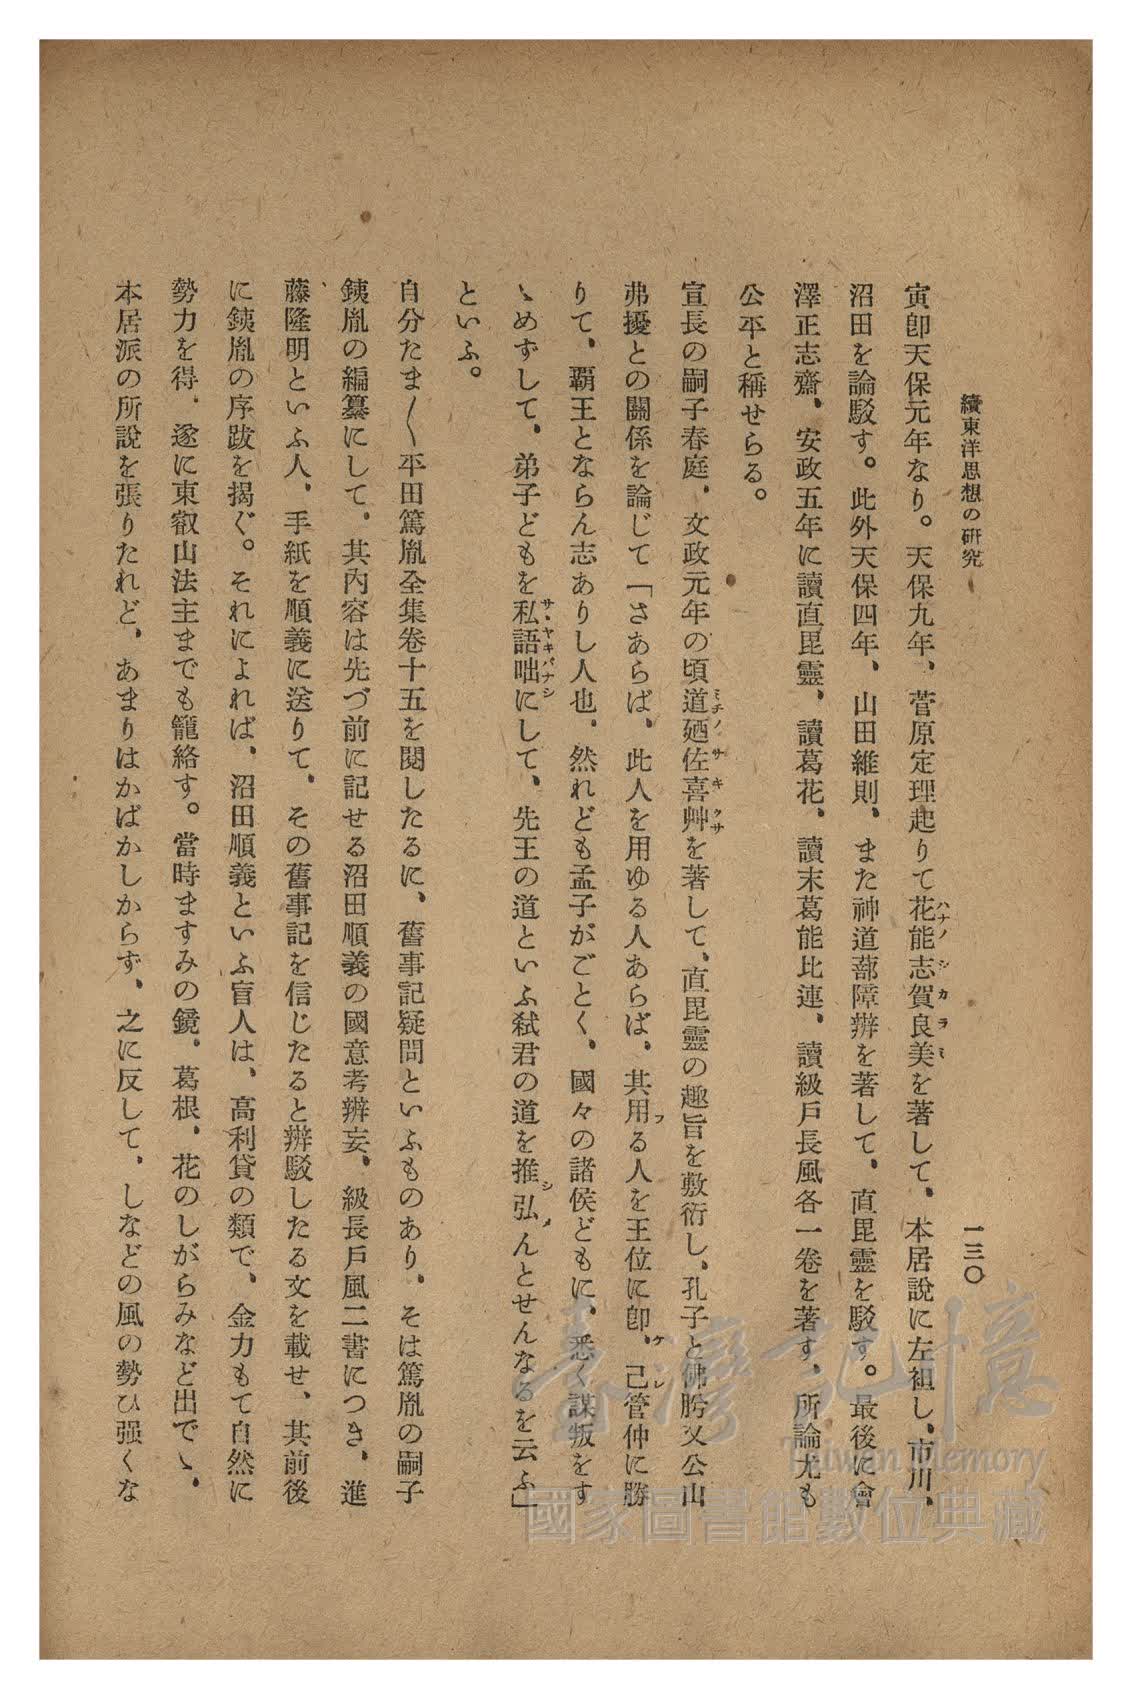 續東洋思想の研究
一三〇
寅卽天保元年なり。天保九年、菅原定理起りて花能志賀良美を著して、本居說に左袒し、市川、
沼田を論駁す。此外天保四年、山田維則、また神道蔀障辨を著して、直毘靈を駁す。最後に會
澤正志齋、安政五年に讀直毘靈、讀葛花、讀末葛能比連、讀級戶長風各一卷を著す、所論尤も
公平と稱せらる。
宣長の嗣子春庭、文政元年の頃道廼佐喜艸を著して、直毘靈の趣旨を敷衍し、孔子と佛肸又公山
弗擾との關係を論じて「さあらば、此人を用ゆる人あらば、其用る人を王位に卽、己管仲に勝
りて、覇王とならん志ありし人也、然れども孟子がごとく、國々の諸侯どもに、悉く謀叛をす
ゝめずして、弟子どもを私語咄にして、先王の道といふ弑君の道を推弘んとせんなるを云ふ」
といふ。
自分たま〱平田篤胤全集卷十五を閱したるに、舊事記疑問といふものあり、そは篤胤の嗣子
銕胤の編纂にして、其內容は先づ前に記せる沼田順義の國意考辨妄、級長戶風二書につき、進
藤隆明といふ人、手紙を順義に送りて、その舊事記を信じたると辨駁したる文を載せ、其前後
に銕胤の序跋を揭ぐ。それによれば、沼田順義といふ盲人は、高利貸の類で、金力もて自然に
勢力を得、遂に東叡山法主までも籠絡す。當時ますみの鏡、葛根、花のしがらみなど出でゝ、
本居派の所說を張りたれど、あまりはかばかしからず、之に反して、しなどの風の勢ひ强くな
臺灣記憶
Taiwan Memory
國家圖書館數位典藏